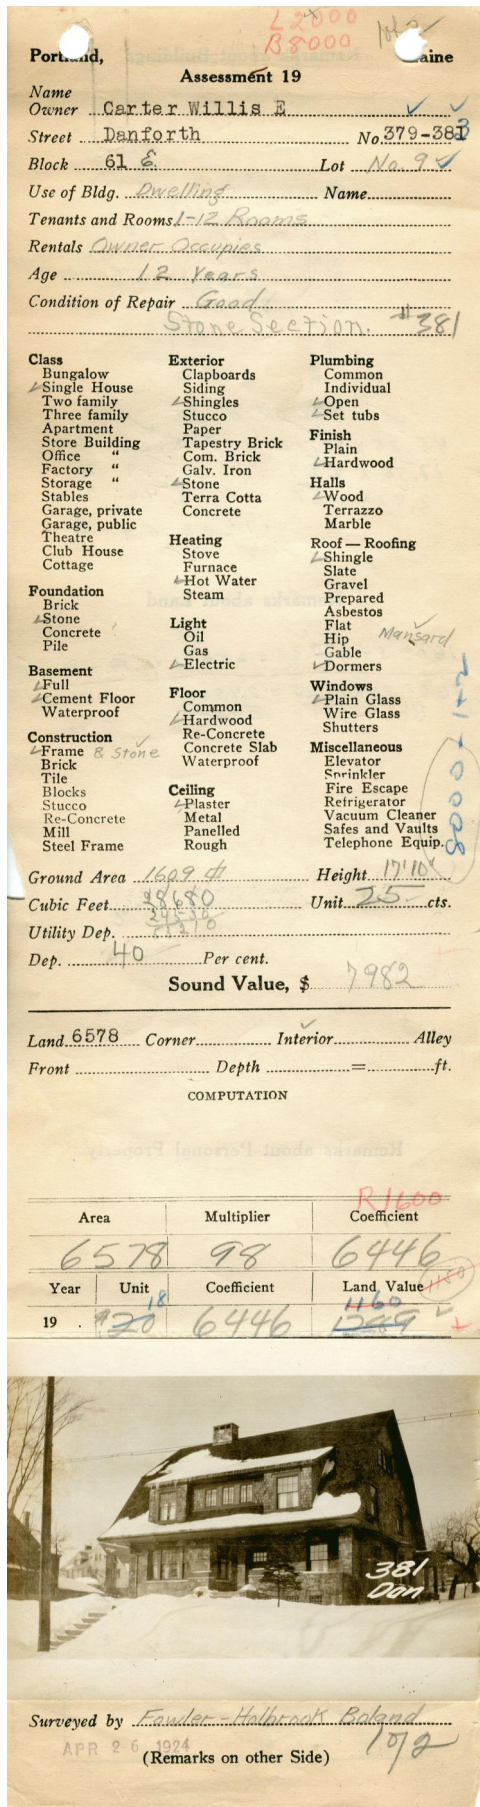 L 2000
B 8000
1 of 2
Portland, Maine
Assessment 19
Name
Owner Carter Willis E
Street Danforth No. 379-381
3
Block 61 E Lot No. 9
Use of Bldg. Dwelling Name
Tenants and Rooms 1-12 Rooms
Rentals Owner Occupies
Age 12 Years
Condition of Repair Good
Stone Section. #381
Class
Bungalow
Single House
Two family
Three family
Apartment
Store Building
Office "
Factory "
Storage "
Stables
Garage, private
Garage, public
Theatre
Club House
Cottage
Foundation
Brick
Stone
Concrete
Pile
Basement
Full
Cement Floor
Waterproof
Construction
Frame & Stone
Brick
Tile
Blocks
Stucco
Re-Concrete
Mill
Steel Frame
Exterior
Clapboards
Siding
Shingles
Stucco
Paper
Tapestry Brick
Com. Brick
Galv. Iron
Stone
Terra Cotta
Concrete
Heating
Stove
Furnace
Hot Water
Steam
Light
Oil
Gas
Electric
Floor
Common
Hardwood
Re-Concrete
Concrete Slab
Waterproof
Ceiling
Plaster
Metal
Panelled
Rough
Plumbing
Common
Individual
Open
Set tubs
Finish
Plain
Hardwood
Halls
Wood
Terrazzo
Marble
Roof — Roofing
Shingle
Slate
Gravel
Prepared
Asbestos
Flat
Hip Mansard
Gable
Dormers
Windows
Plain Glass
Wire Glass
Shutters
Miscellaneous
Elevator
Sprinkler
Fire Escape
Refrigerator
Vacuum Cleaner
Safes and Vaults
Telephone Equip.
8000
Ground Area 1609 Height 17'10"
Cubic Feet 28680 Unit 25 cts.
Utility Dep.
Dep. 40 Per cent.
Sound Value, $ 7982
Land 6578 Corner Interior Alley
Front Depth = ft.
COMPUTATION
R1600
Area Multiplier Coefficient
6578 98 6446
Year Unit Coefficient Land Value 1150
18 1160
19 . $20 6446 1289
381
Dan
Surveyed by Fowler-Holbrook Boland
APR 26 1924
1 of 2
(Remarks on other Side)